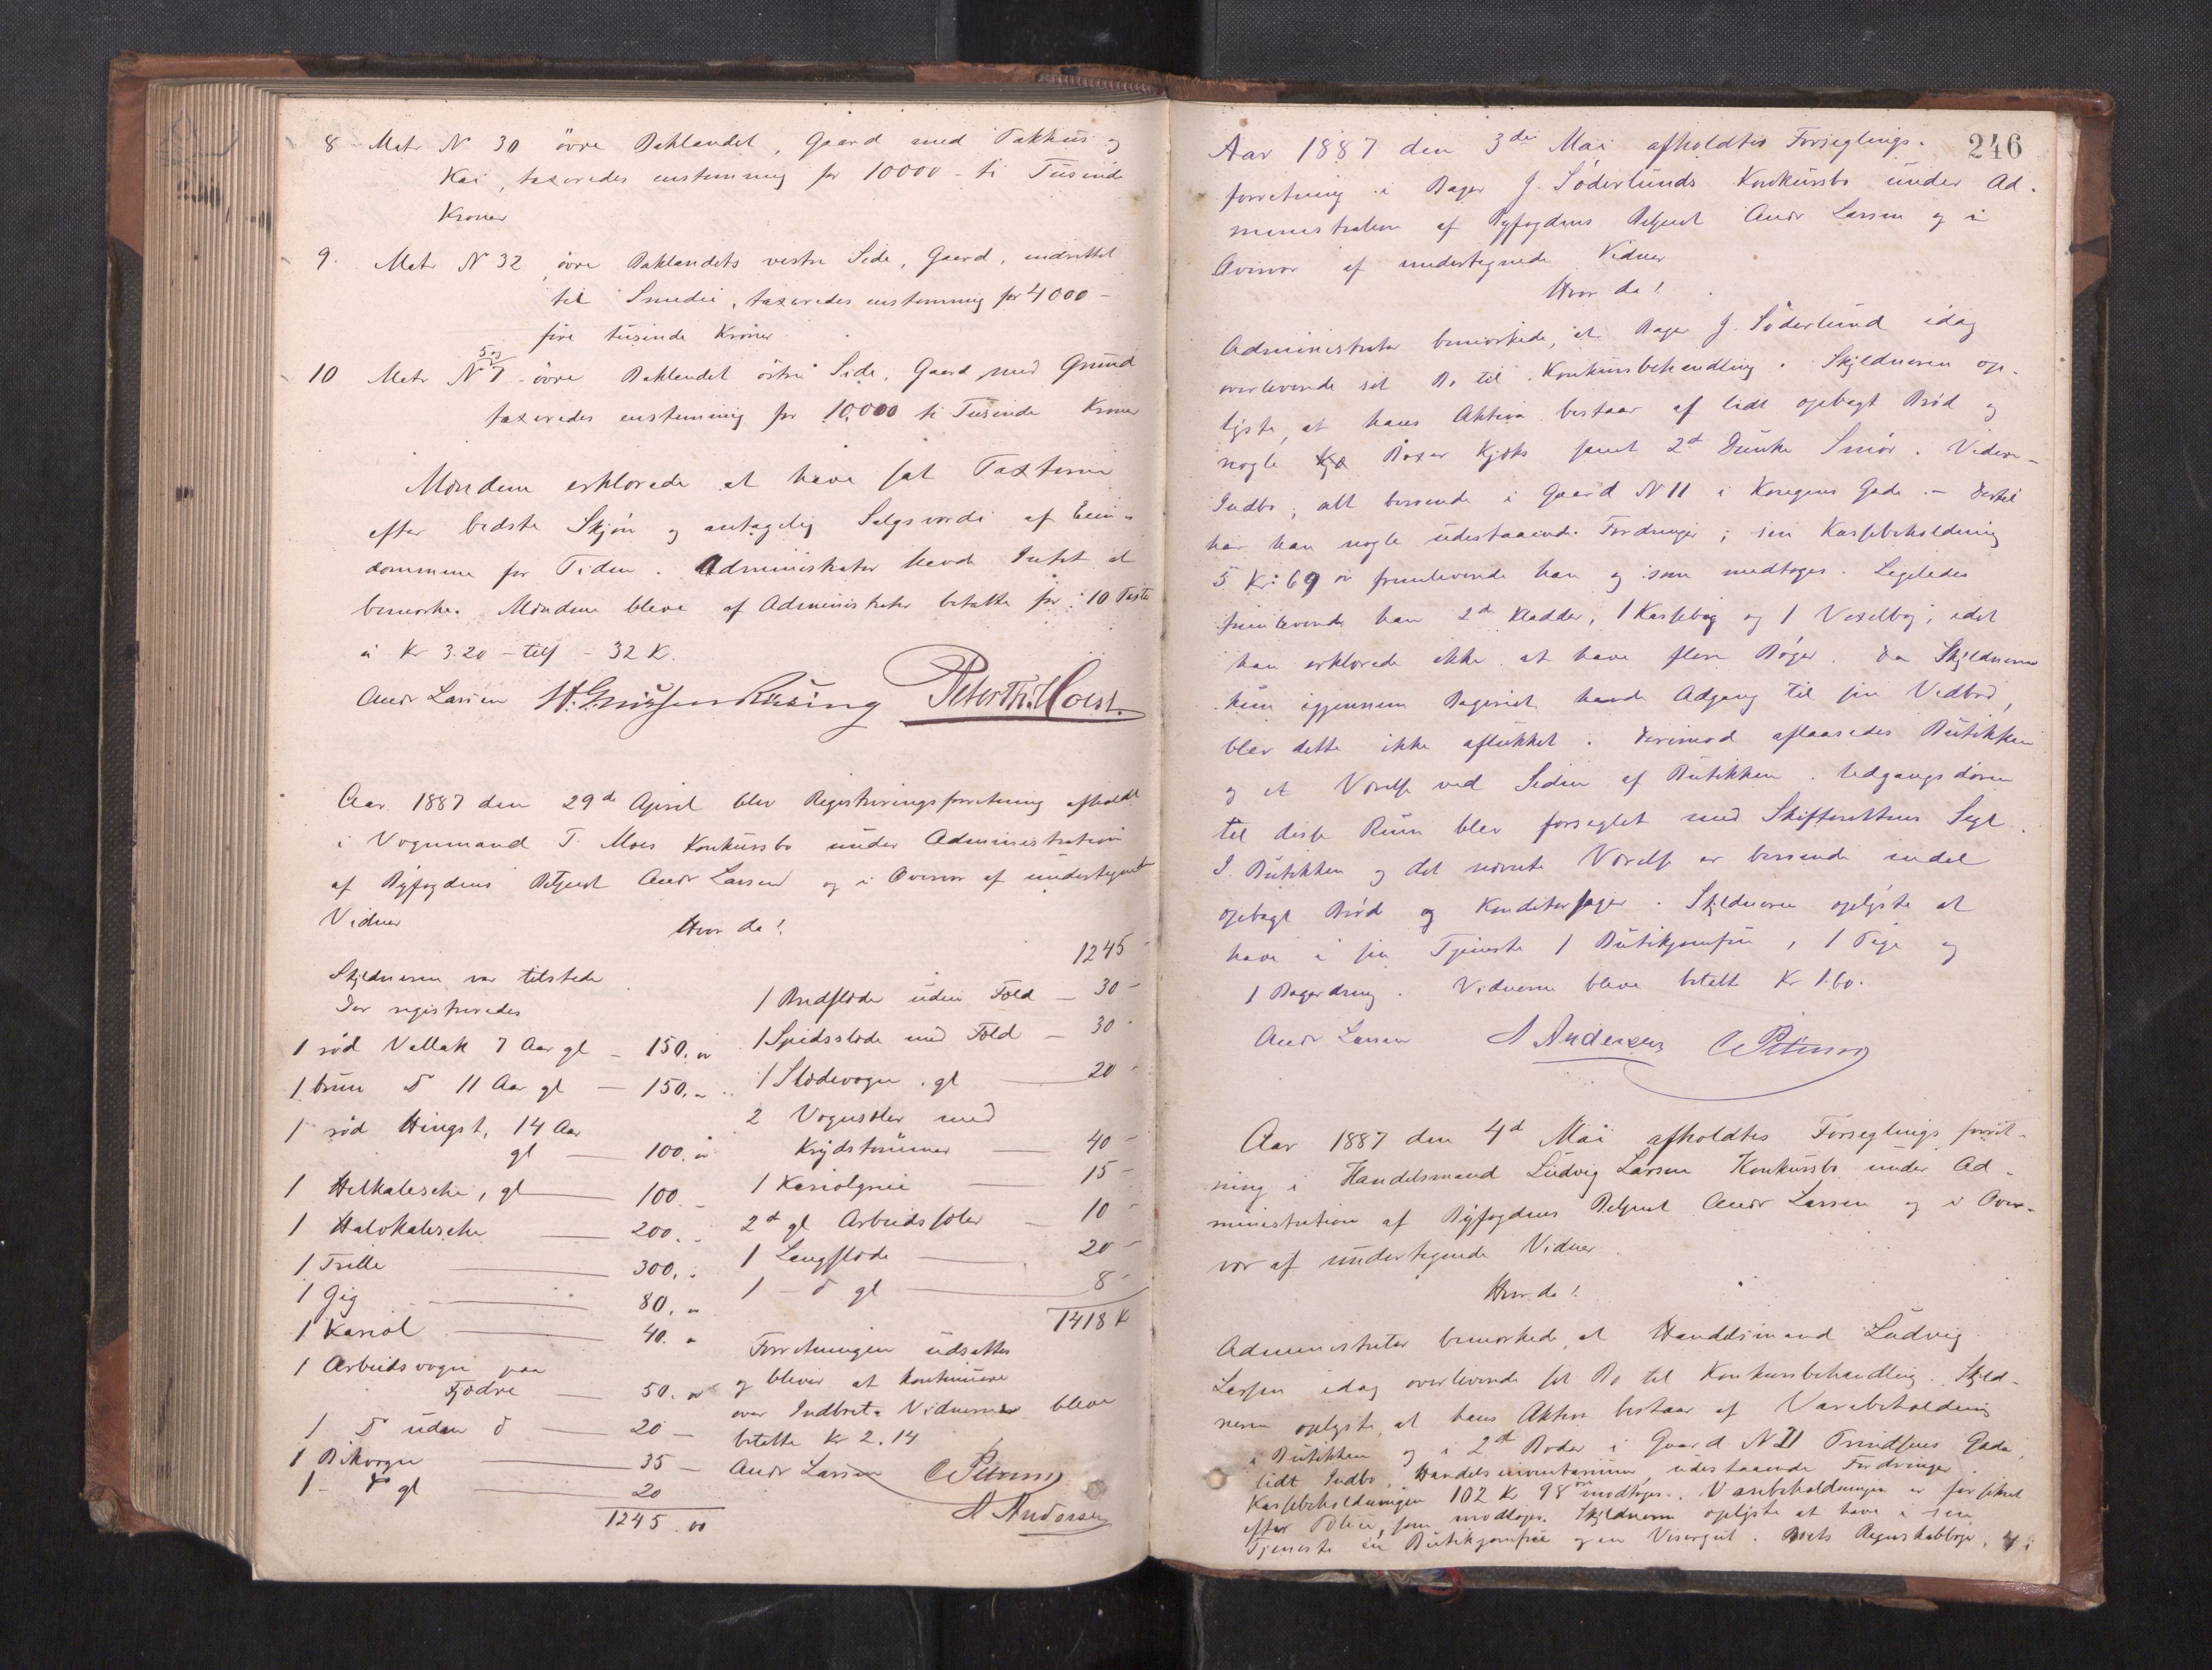 8 Matr N 30 övre Baklandet, Gaard med Pakhus og
Kai, taxeredes enstemmig for 10000 - ti Tusinde
Kroner
9. Matr N 32 övre Baklandets vestre Side, Gaard, indrettet
til Smedie, taxeredes enstemmig for 4000 -
fire tusinde Kroner
10 Matr N 5 og 7 övre Baklandet östre Side, Gaard med Grund
taxeredes enstemmig for 10,000 ti Tusinde Kroner
Mændene erklærede at have sat Taxterne
efter bedste Skjøn og antagelig Salgsværdi af Eien-
dommene for Tiden. Administrator havde Intet at
bemærke. Mændene bleve af Administrator betalte for 10 Taxter
á Kr 3.20 - tils - 32 K.
Andr Larsen Peter Th. Holst
Aar 1887 den 29de April blev Registreringsforretning afholdt
i Vognmand T. Moes Konkursbo under Administration
af Byfogdens Betjent Andr Larsen og i Overvær af undertegnede
Vidner
Hvor da!
Skyldneren var tilstede
Der registreredes
1 rød Vallak 7 Aar gl - 150. "
1 brun D 11 Aar gl - 150. "
1 rød Hingst, 14 Aar
gl - 100. "
1 Helkalesche, gl - 100. -
1 Halvkalesche - 200. -
1 Trille - 300. -
1 Gig - 80. "
1 Kariol - 40. "
1 Arbeidsvogn paa
Fjædre - 50. "
1 D uden d - 20 -
1 Bikvogn - 35 -
1 - D gl - 20
1245.00
1245 -
1 Bredslæde uden Fæld - 30 -
1 Spidsslæde med Fæld - 30 -
1 Slædevogn. gl - 20 -
2 Vognsæler med
Krydstømmer - 40 -
1 Kariolgreie - 15 -
2de gl Arbeidssæler - 10 -
1 Langslæde - 20 -
1 - d gl - 8 -
1418 K
Forretningen udsattes
og bliver at kontinuere
over Indboet. Vidnerne bleve
betalte Kr 2.14
Andr Larsen C Petersen
A Andersen
246
Aar 1887 den 3die Mai afholdtes Forseglings-
forretning i Bager J. Söderlunds Konkursbo under Ad-
ministration af Byfogdens Betjent Andr Larsen og i
Overvær af undertegnede Vidner
Hvor da!
Administrator bemærkede, at Bager J. Söderlund idag
overleverede sit Bo til Konkursbehandling. Skyldneren op-
lyste, at hans Aktiva bestaar af lidt opbagt Brød og
nogle Boxer Kjæks samt 2de Dunke Smør. Videre -
Indbo, alt beroende i Gaard N 11 i Kongens Gade. - Dertil
har han nogle udestaaende Fordringer; sin Kassebeholdning
5 Kr. 69 ør fremleverede han og som medtoges. Ligeledes
fremleverede han 2de Kladder, 1 Kassebog og 1 Vexelbog, idet
han erklærede ikke at have flere Bøger. Da Skyldneren
kun igjennem Bageriet havde Adgang til sin Vedbod,
blev dette ikke aflukket. Derimod aflaasedes Butikken
og et Værelse ved Siden af Butikken. Udgangsdøren
til disse Rum blev forseglet med Skifterettens Segl.
I Butikken og det nævnte Værelse er beroende endel
opbagt Brød og Konditorsager. Skyldneren oplyste at
have i sin Tjeneste 1 Butikjomfru, 1 Pige og
1 Bagerdreng. Vidnerne bleve betalt Kr 1.60.
Andr Larsen A Andersen C Petersen
Aar 1887 den 4de Mai afholdtes Forseglingsforret-
ning i Handelsmand Ludvig Larsen Konkursbo under Ad-
ministration af Byfogdens Betjent Andr Larsen og i Over-
vær af undertegnede Vidner
Hvor da!
Administrator bemærkede, at Handelsmand Ludvig
Larsen idag overleverede sit Bo til Konkursbehandling. Skyld-
neren oplyste, at hans Aktiva bestaar af Varebeholdning
i Butikken og i 2de Boder i Gaard N 21 Gade
lidt Indbo, Handelsinventarium, udestaaende Fordringer.
Kassebeholdningen 102 Kr 98 ør modtoges. Varebeholdningen er forsikret
efter Police, som modtoges. Skyldneren oplyste at have i sin
Tjeneste en Butikjomfru og en Visergut. Boets Regnskabbøger, 4